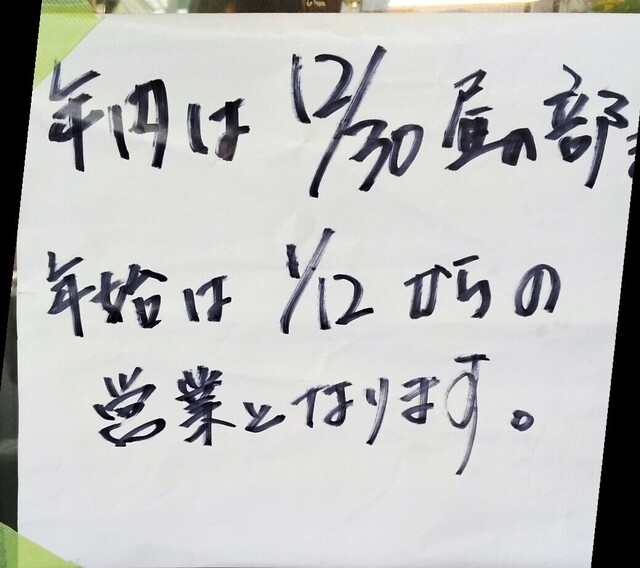 年内は12/30昼の部ま
年始は1/12からの
営業となります。